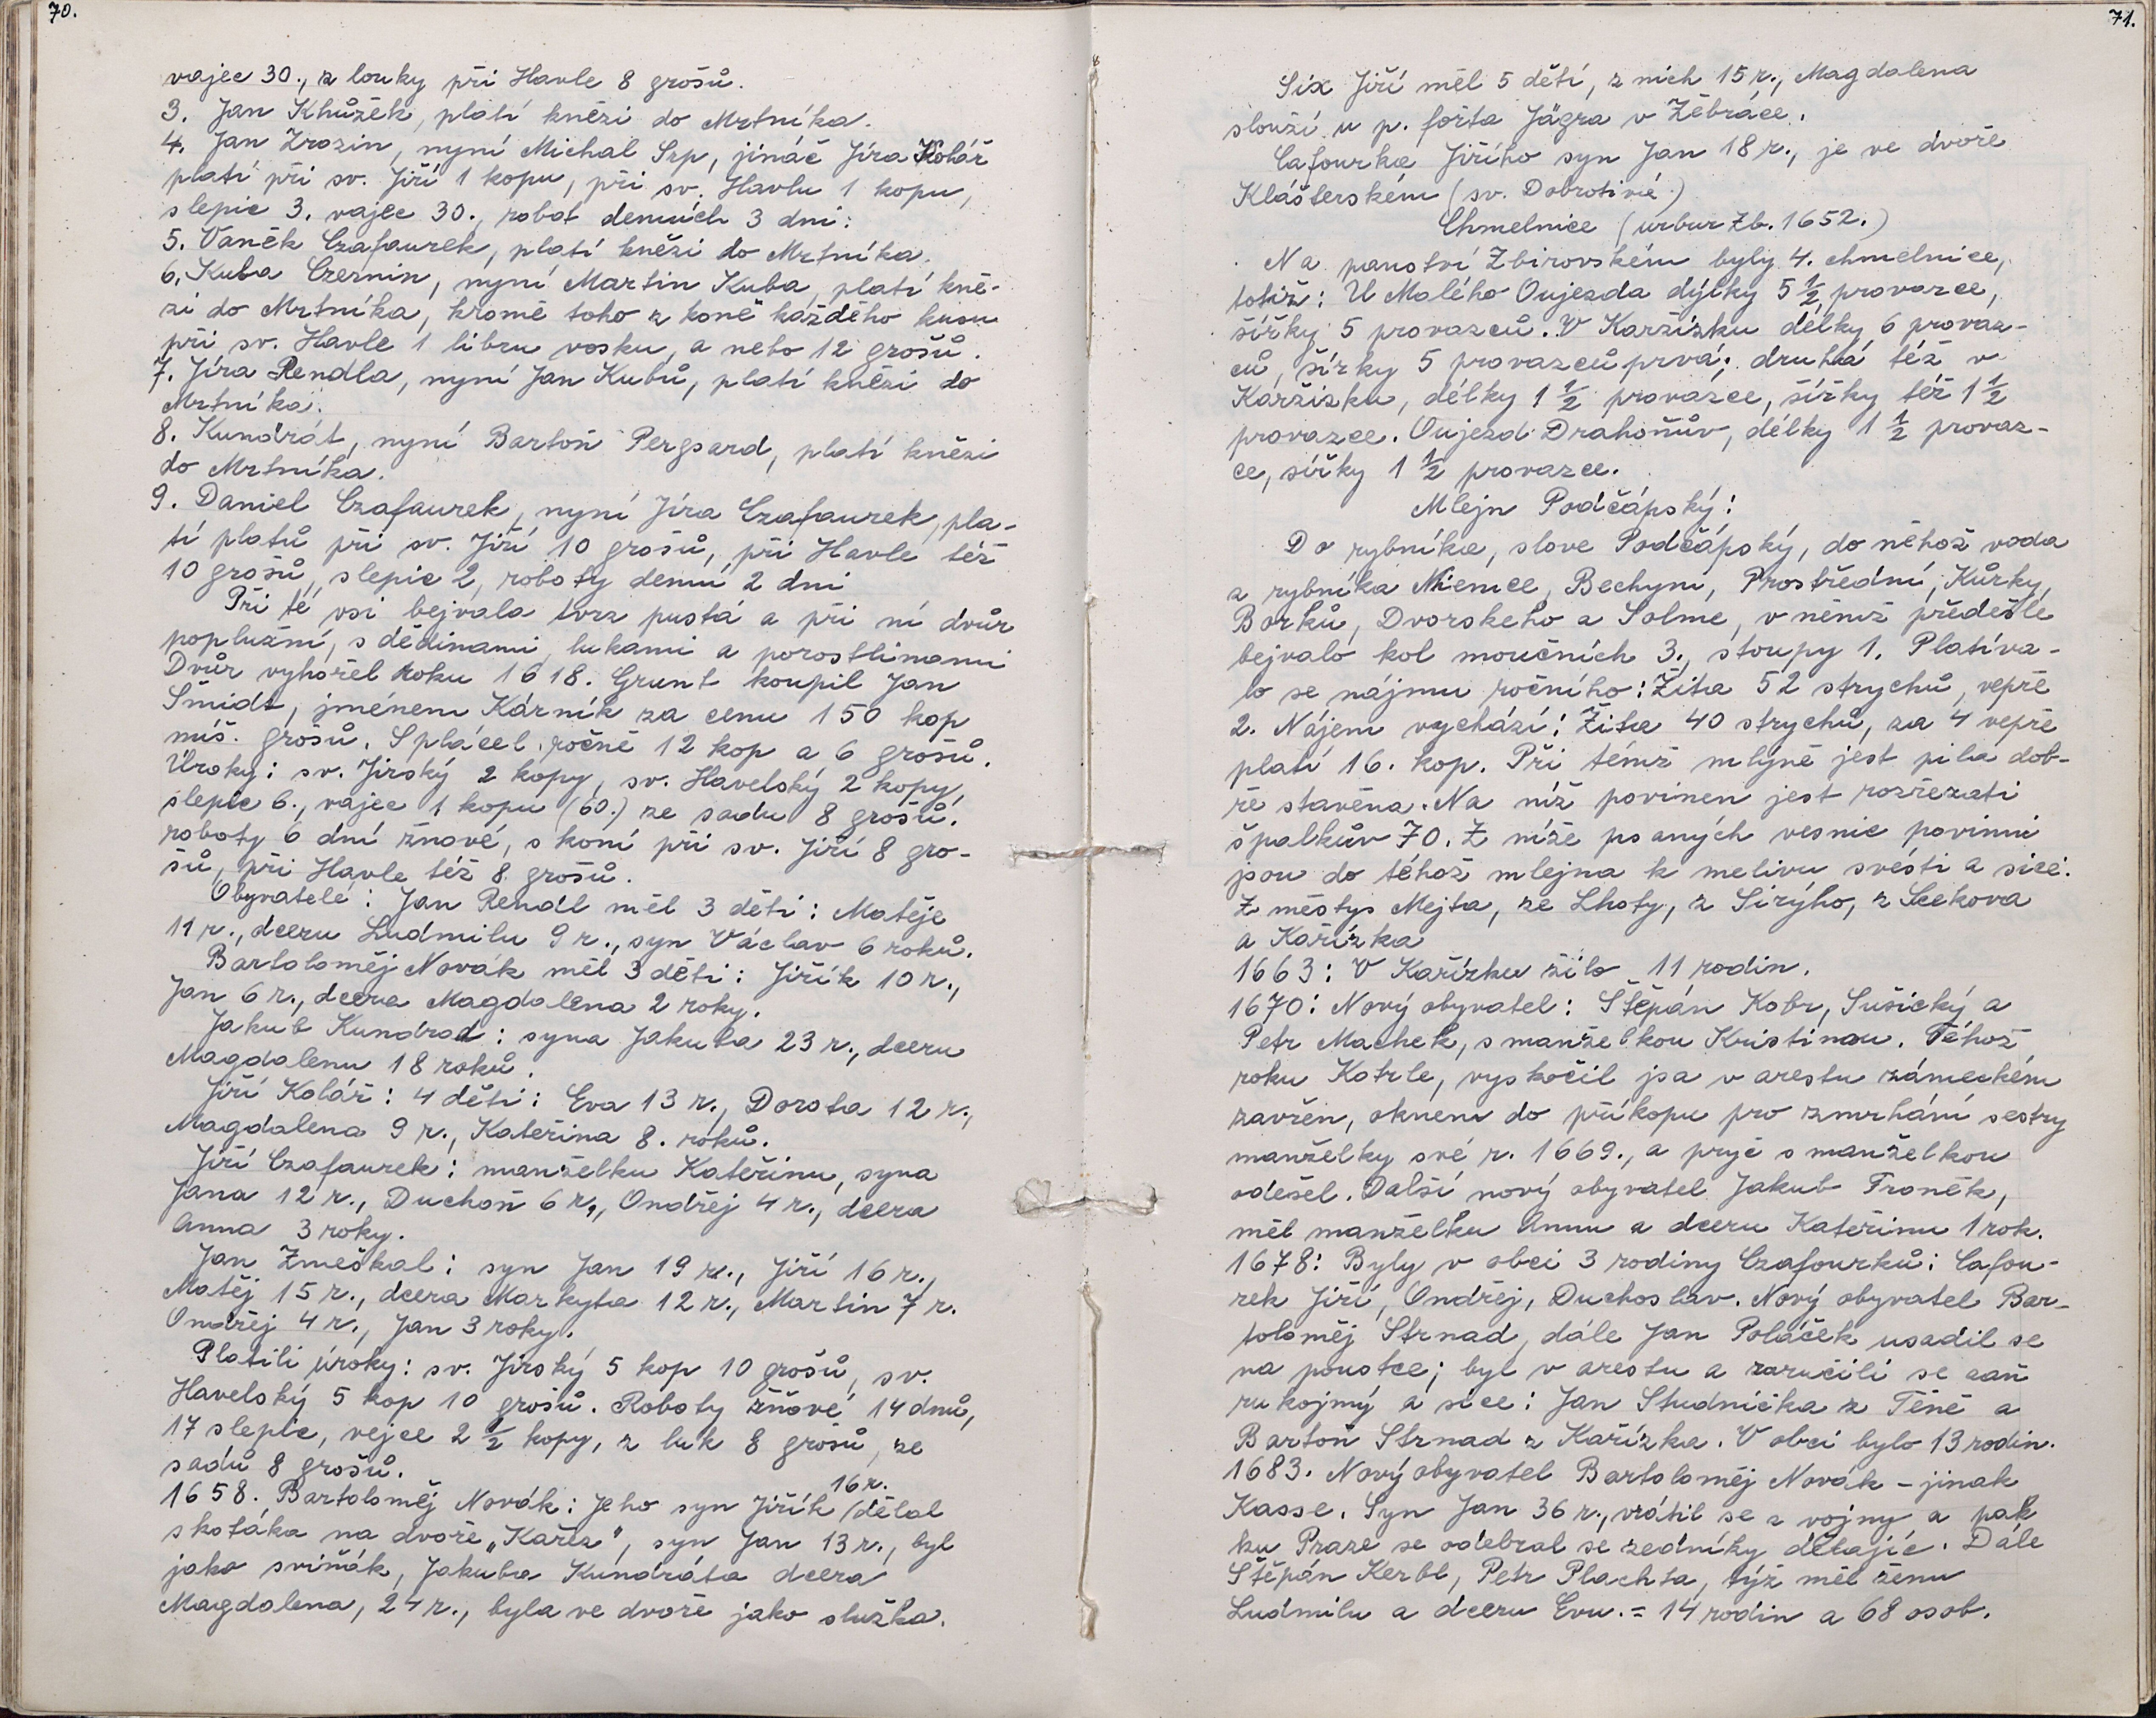 70.
vajec 30., z louky při Havle 8 grošů.
3. Jan Khůžěk, platí knězi do Mrtníka.
4. Jan Zrozin, nyní Michal Szp, jináč Jíra Kolář
platí při sv. Jiří 1 kopu, při sv. Havlu 1 kopu,
slepic 3. vajec 30., robot denních 3 dni:
5. Vaněk Czafaurek, platí knězi do Mrtníka.
6. Kuba Czernin, nyní Martin Kuba, platí kně-
zi do Mrtníka, kromě toho z koně každého kusu
při sv. Havle 1 libru vosku, a nebo 12 grošů.
7. Jíra Rendla, nyní Jan Kubů, platí knězi do
Mrtníka.
8. Kundrát, nyní Bartoň Pergsard, platí knězi
do Mrtníka.
9. Daniel Czafaurek, nyní Jíra Czafaurek, pla-
tí platů při sv. Jiří 10 grošů, při Havle též
10 grošů, slepic 2, roboty denní 2 dni
Při té vsi bejvala tvrz pustá a při ní dvůr
poplužní, s dědinami, lukami a porostlinami
Dvůr vyhořel roku 1618. Grunt koupil Jan
Šmidt, jménem Kárník za cenu 150 kop
míš. grošů. Splácel ročně 12 kop a 6 grošů.
Úroky: sv. Jirský 2 kopy, sv. Havelský 2 kopy,
slepic 6., vajec 1 kopu (60.) ze sadu 8 grošů.
roboty 6 dní žnové, s koní při sv. Jiří 8 gro-
šů, při Havle též 8 grošů.
Obyvatelé: Jan Rendl měl 3 děti: Matěje
11 r., dceru Ludmilu 9 r., syn Václav 6 roků.
Bartoloměj Novák měl 3 děti: Jiřík 10 r.,
Jan 6 r., dcera Magdalena 2 roky.
Jakub Kundrad: syna Jakuba 23 r., dceru
Magdalenu 18 roků.
Jiří Kolář: 4 děti: Eva 13 r., Dorota 12 r.,
Magdalena 9 r., Kateřina 8. roků.
Jiří Czafaurek: manželku Kateřinu, syna
Jana 12 r., Duchoň 6 r., Ondřej 4 r., dcera
Anna 3 roky.
Jan Zmeškal: syn Jan 19 r., Jiří 16 r.,
Matěj 15 r., dcera Markyta 12 r., Martin 7 r.
Ondřej 4 r., Jan 3 roky.
Platili úroky: sv. Jirský 5 kop 10 grošů, sv.
Havelský 5 kop 10 grošů. Roboty žňové 14 dnů,
17 slepic, vejce 2 1/2 kopy, z luk 8 grošů, ze
sadů 8 grošů.
1658. Bartoloměj Novák: Jeho syn Jiřík 16 r. dělal
skotáka na dvoře „Kařez", syn Jan 13 r., byl
jako sviňák, Jakuba Kundráta dcera
Magdalena, 24 r., byla ve dvoře jako služka.
71.
Six Jiří měl 5 dětí, z nich 15 r., Magdalena
slouží u p. fořta Jägra v Žěbráce.
Cafourka Jiřího syn Jan 18 r., je ve dvoře
Klášterském (sv. Dobrotivé.)
Chmelnice (urbur Zb. 1652.)
Na panství Zbirovském byly 4. chmelnice,
totiž: U Malého Oujezda dýlky 5 1/2 provazce,
šířky 5 provazců. V Karžízku délky 6 provaz-
ců, šírky 5 provazců prvá; druhá též v
Karžizku, délky 1 1/2 provazce, šířky též 1 1/2
provazce. Oujezd Drahoňův, délky 1 1/2 provaz-
ce, šířky 1 1/2 provazce.
Mlejn Podčápský:
Do rybníka, slove Podčápský, do něhož voda
z rybníka Nienice, Bechyni, Prostřední, Kůrky,
Borků, Dvorskeho a Solme, v němž předešle
bejvalo kol moučních 3., stoupy 1. Platíva-
lo se nájmu ročního: Žita 52 strychů, vepře
2. Nájem vychází: Žita 40 strychů, za 4 vepře
platí 16. kop. Při témž mlýně jest pila dob-
ře stavěna. Na níž povinen jest rozřezati
špalkův 70. Z níže psaných vesnic povinni
jsou do téhož mlejna k melivu svésti a sice:
z městys Mejta, ze Lhoty, z Sirýho, z Sekova
a Kařízka
1663: V Kařízku žilo 11 rodin.
1670: Nový obyvatel: Štěpán Kobr, Sušický a
Petr Machek, s manželkou Kristinou. Téhož
roku Kotrle, vyskočil jsa v arestu zámeckém
zavřen, oknem do příkopu pro zmrhání sestry
manželky své r. 1669., a pryč s manželkou
odešel. Další nový obyvatel Jakub Froněk,
měl manželku Annu a dceru Kateřinu 1 rok.
1678: Byly v obci 3 rodiny Czafourků: Cafou-
rek Jiří, Ondřej, Duchoslav. Nový obyvatel Bar-
toloměj Strnad, dále Jan Poláček usadil se
na poustce; byl v arestu a zaručili se zaň
rukojmý a sice: Jan Studnička z Těně a
Bartoň Strnad z Kařízka. V obci bylo 13 rodin.
1683. Nový obyvatel Bartoloměj Novák - jinak
Kasse. Syn Jan 36 r., vrátil se z vojny a pak
ku Praze se odebral se zedníky dělajíc. Dále
Štěpán Kerbl, Petr Plachta, týž měl ženu
Ludmilu a dceru Evu. = 14 rodin a 68 osob.